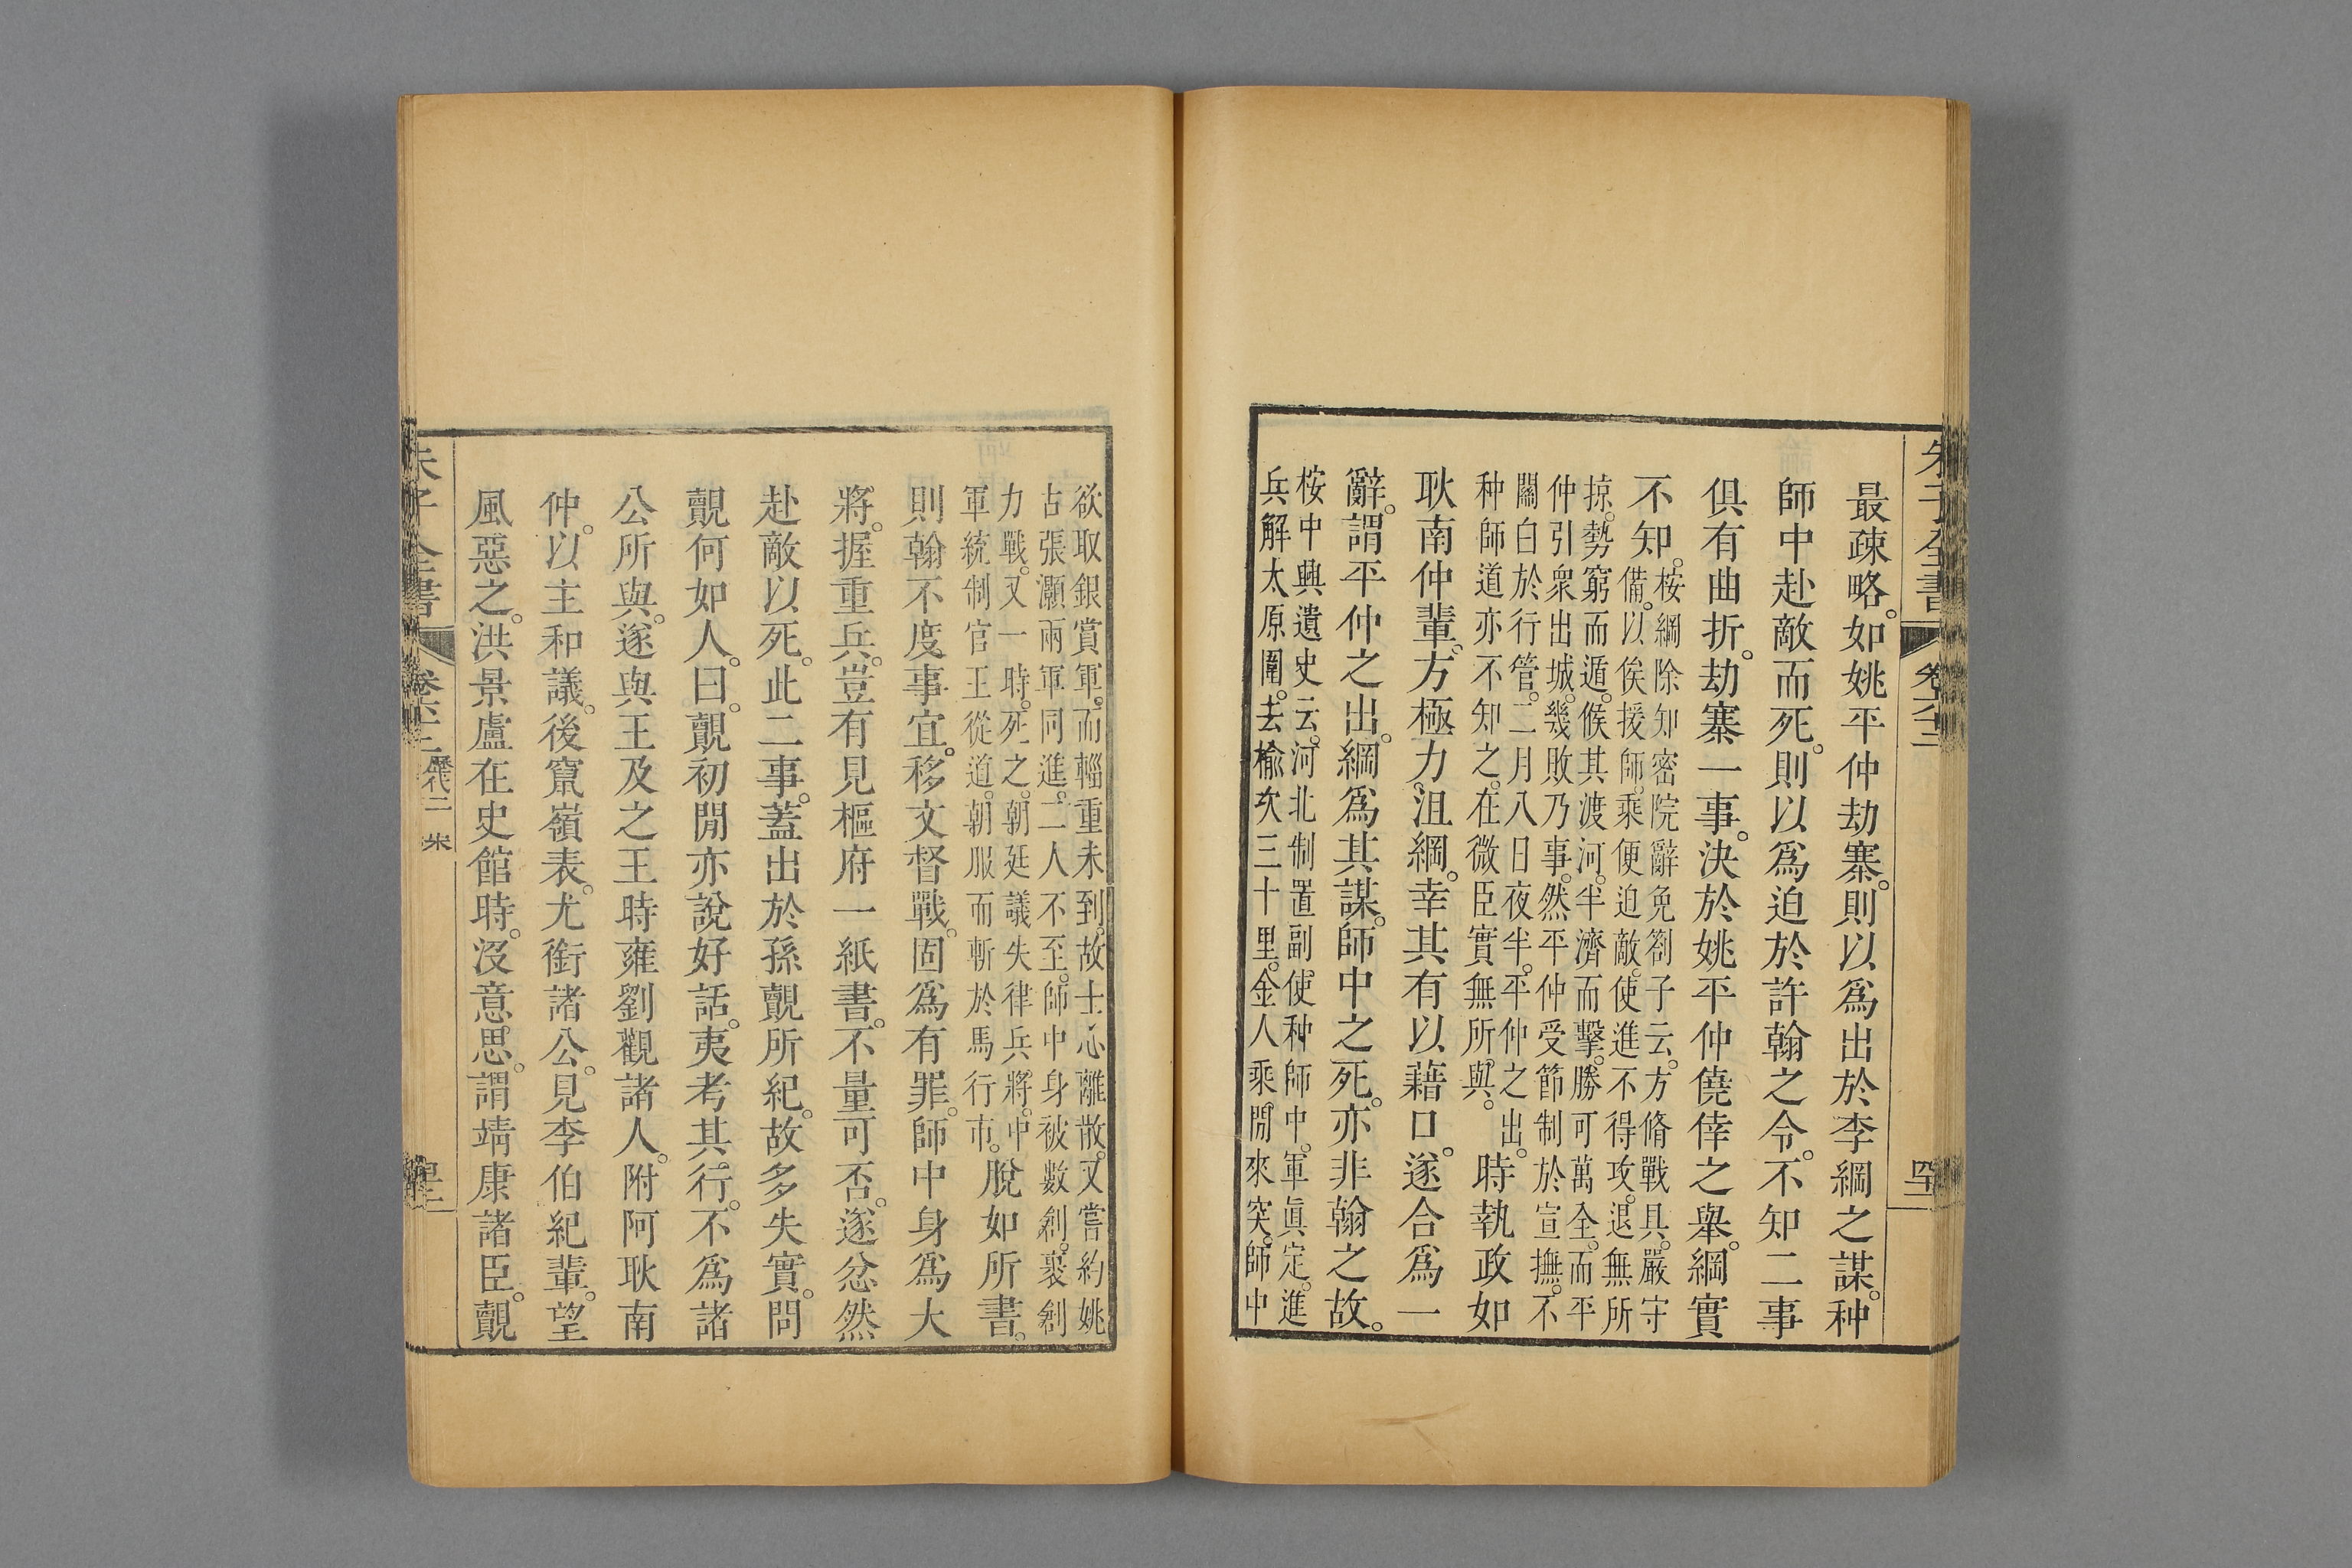 最疎略。如姚平仲劫寨。則以爲出於李綱之謀。种
師中赴敵而死。則以爲迫於許翰之令。不知二事
俱有曲折。劫寨一事。決於姚平仲僥倖之舉。綱實
不知。桉綱除知密院辭免劄子云。方脩戰具。嚴守
備。以俟援師。乘便迫敵。使進不得攻。退無所
掠。勢窮而遁。候其渡河。半濟而擊。勝可萬全。而平
仲引衆出城。幾敗乃事。然平仲受節制於宣撫。不
關白於行管。二月八日夜半。平仲之出。
种師道亦不知之。在微臣實無所與。時執政如
耿南仲輩。方極力沮綱。幸其有以藉口。遂合爲一
辭。謂平仲之出。綱爲其謀。師中之死。亦非翰之故。
桉中興遺史云。河北制置副使种師中。軍眞定。進
兵解太原圍。去楡次三十里。金人乘閒來突。師中
欲取銀賞軍。而輜重未到。故士心離散。又嘗約姚
古張灝兩軍同進。二人不至。師中身被數創。裹創
力戰。又一時。死之。朝廷議失律兵。將。中
軍統制官王從道。朝服而斬於馬行市。脫如所書。
則翰不度事宜。移文督戰。固爲有罪。師中身爲大
將。握重兵。豈有見樞府一紙書。不量可否。遂忿然
赴敵以死。此二事。蓋出於孫覿所紀。故多失實。問
覿何如人。曰。覿初閒亦說好話。夷考其行。不爲諸
公所與。遂與王及之王時雍劉觀諸人。附阿耿南
仲。以主和議。後竄嶺表。尤銜諸公。見李伯紀輩。望
風惡之。洪景盧在史館時。沒意思。謂靖康諸臣。覿
歷代二 宋